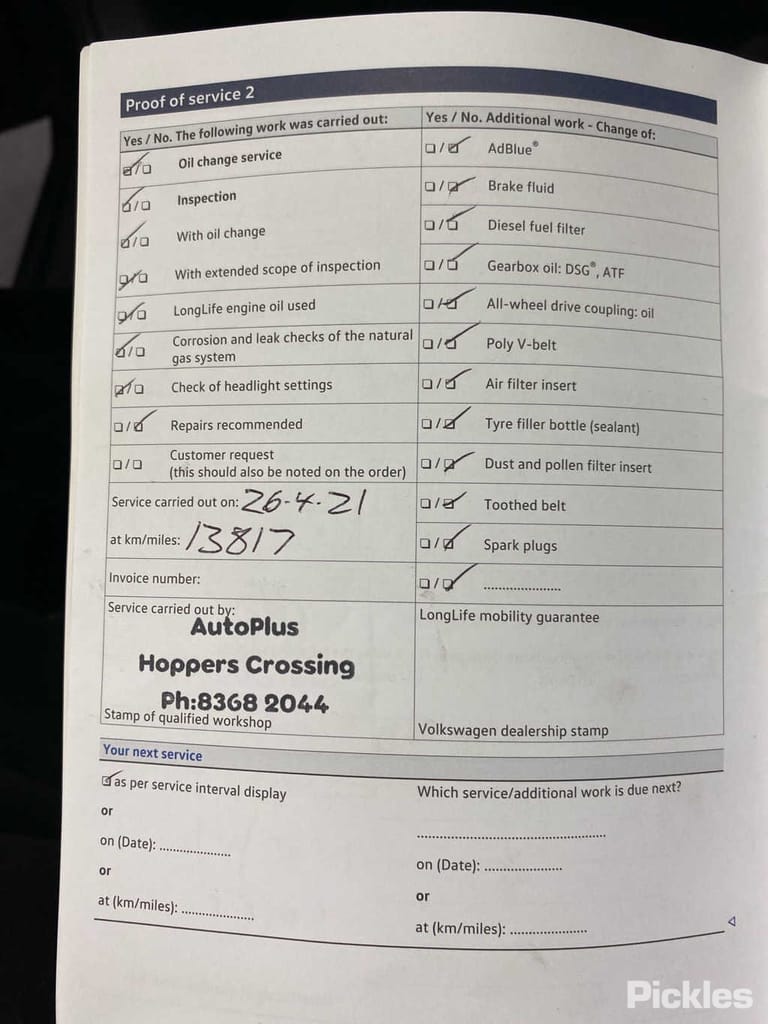 Proof of service 2
Yes / No. The following work was carried out:
Oil change service
Inspection
With oil change
With extended scope of inspection
LongLife engine oil used
Corrosion and leak checks of the natural
gas system
Check of headlight settings
Repairs recommended
Customer request
(this should also be noted on the order)
Service carried out on: 26-4-21
at km/miles: 13817
Invoice number:
Service carried out by:
AutoPlus
Hoppers Crossing
Ph:8368 2044
Stamp of qualified workshop
Yes / No. Additional work - Change of:
AdBlue®
Brake fluid
Diesel fuel filter
Gearbox oil: DSG®, ATF
All-wheel drive coupling: oil
Poly V-belt
Air filter insert
Tyre filler bottle (sealant)
Dust and pollen filter insert
Toothed belt
Spark plugs
LongLife mobility guarantee
Volkswagen dealership stamp
Your next service
as per service interval display
or
on (Date): ....................
or
at (km/miles): ....................
Which service/additional work is due next?
on (Date): ....................
or
at (km/miles): ....................
Pickles